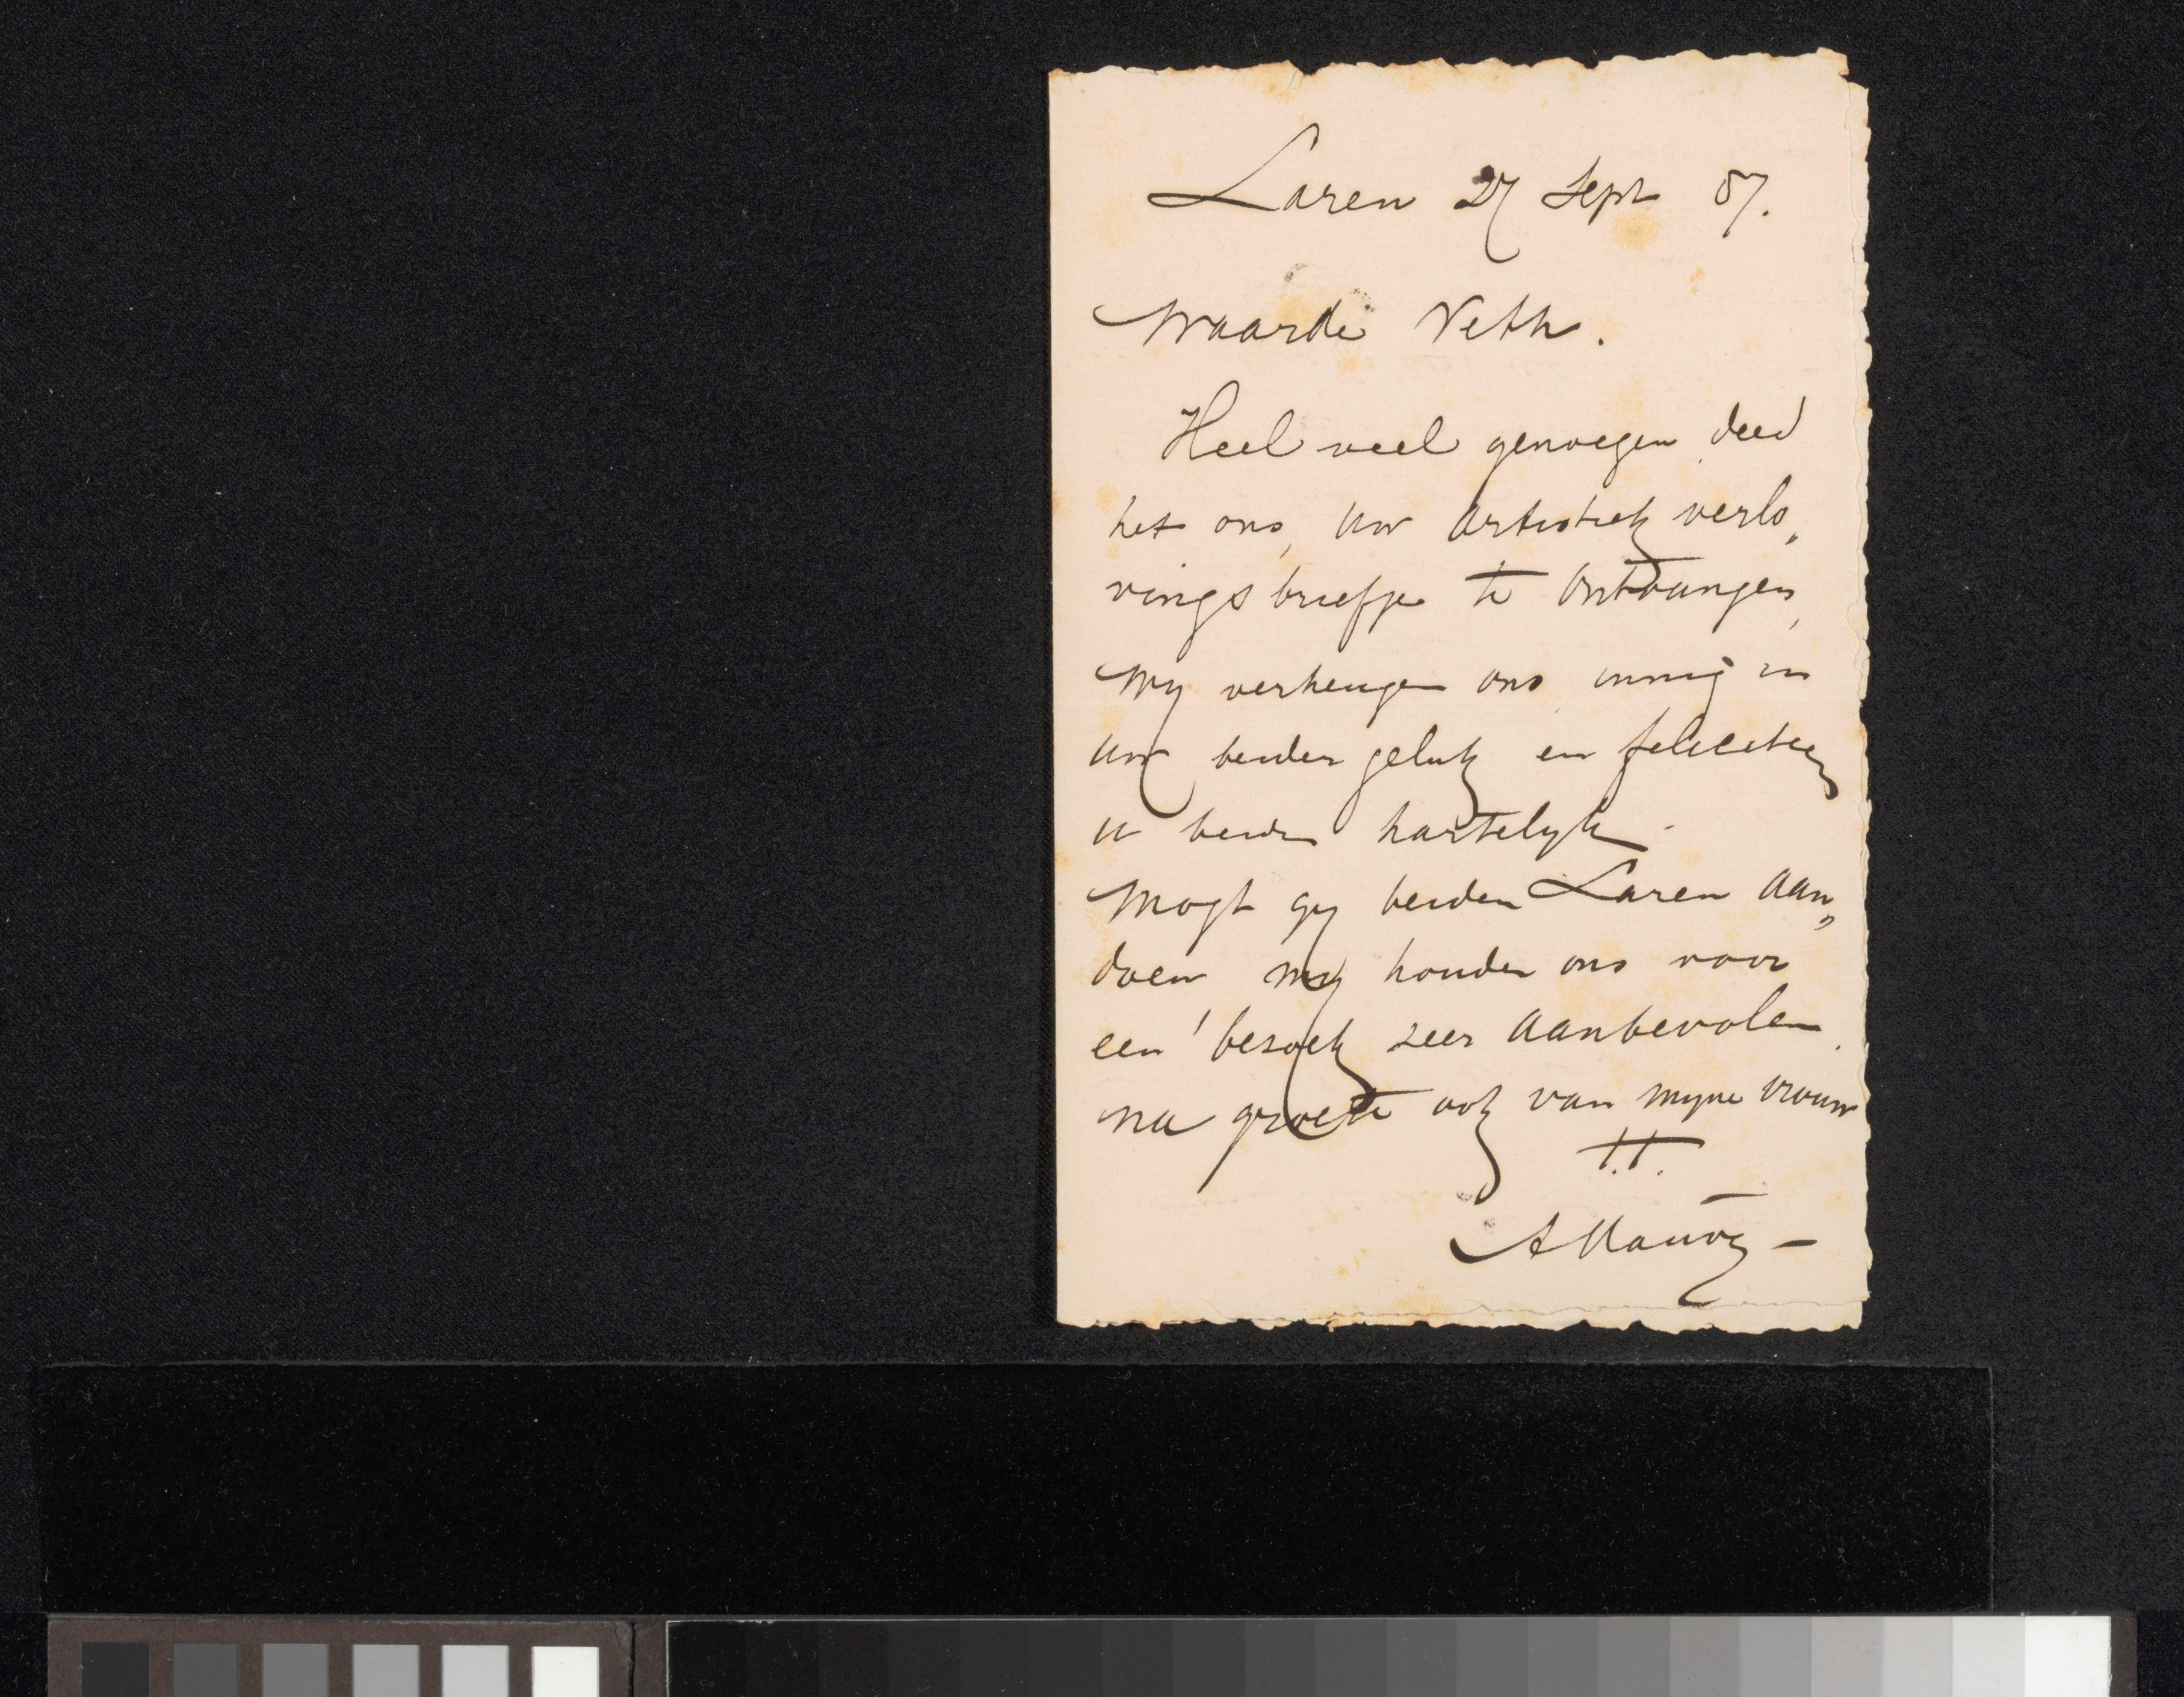 Laren 27 Sept 87.
Waarde Veth.
Heel veel genoegen deed
het ons, uw artistiek verlo„
vings briefje te ontvangen,
Wy verheugen ons innig in
uw beider geluk en feliciteren
u beiden hartelyk.
Mogt gy beiden Laren aan„
doen wy houden ons voor
een' bezoek zeer aanbevolen.
na groete ook van myne vrouw
T.T.
A Mauve